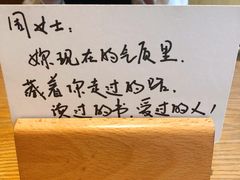 周女士：
妳现在的气质里，
藏着你走过的路，
读过的书，爱过的人！